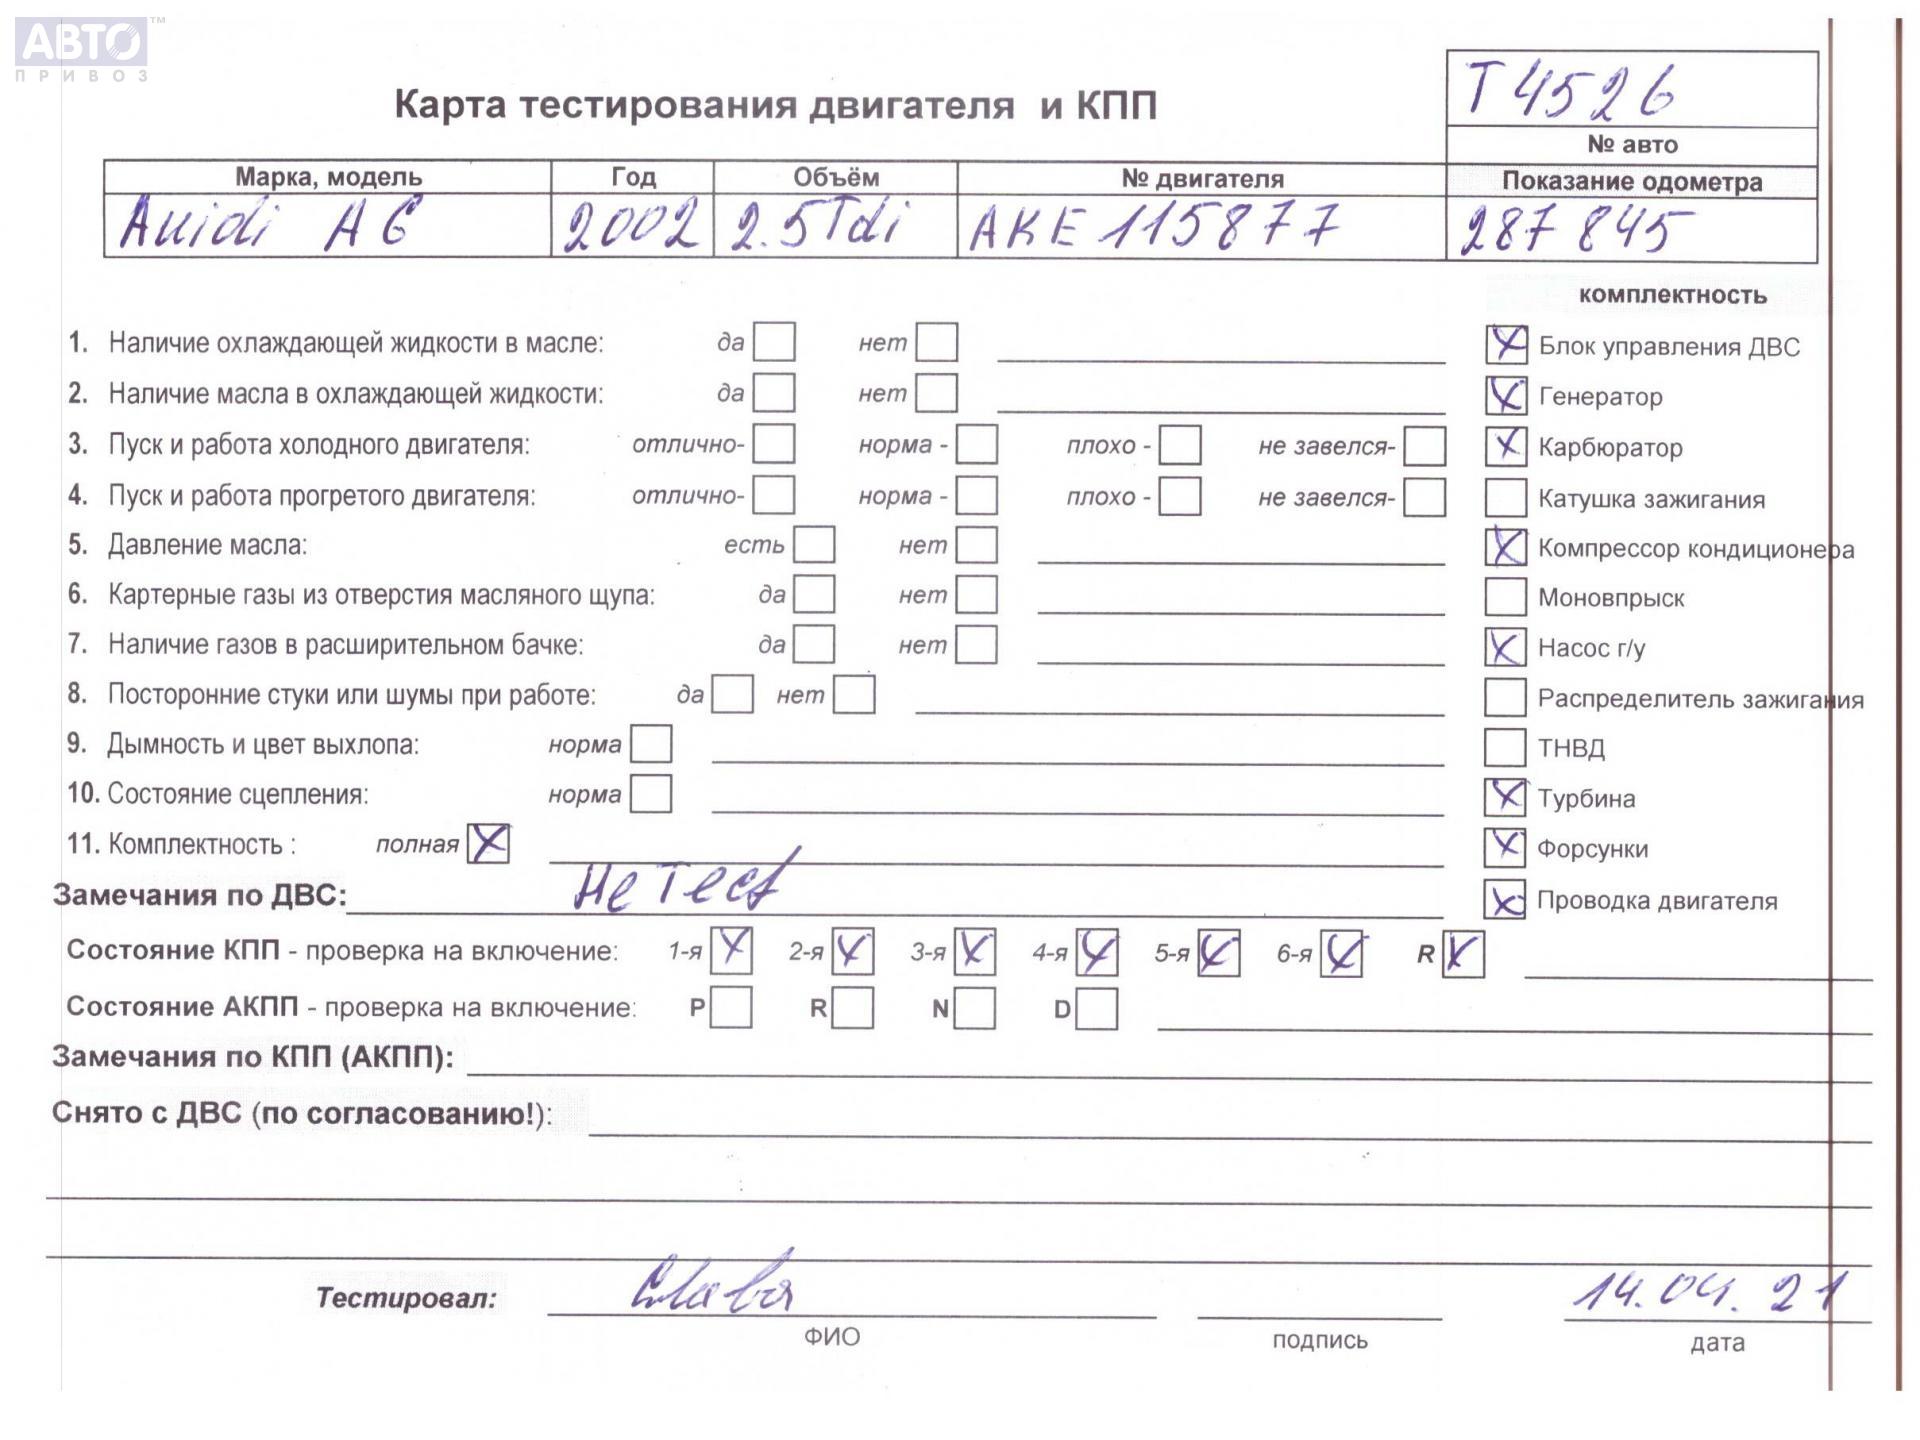 АВТО ™
ПРИВОЗ
Карта тестирования двигателя и КПП
T 4526
№ авто
Марка, модель Год Объём № двигателя Показание одометра
Auidi A6 2002 2.5Tdi AKE 115877 287 845
комплектность
1. Наличие охлаждающей жидкости в масле: да нет
Блок управления ДВС
2. Наличие масла в охлаждающей жидкости: да нет
Генератор
3. Пуск и работа холодного двигателя: отлично- норма - плохо - не завелся-
Карбюратор
4. Пуск и работа прогретого двигателя: отлично- норма - плохо - не завелся-
Катушка зажигания
5. Давление масла: есть нет
Компрессор кондиционера
6. Картерные газы из отверстия масляного щупа: да нет
Моновпрыск
7. Наличие газов в расширительном бачке: да нет
Насос г/у
8. Посторонние стуки или шумы при работе: да нет
Распределитель зажигания
9. Дымность и цвет выхлопа: норма
ТНВД
10. Состояние сцепления: норма
Турбина
11. Комплектность : полная
Форсунки
Замечания по ДВС: Не Тест
Проводка двигателя
Состояние КПП - проверка на включение: 1-я 2-я 3-я 4-я 5-я 6-я R
Состояние АКПП - проверка на включение: P R N D
Замечания по КПП (АКПП):
Снято с ДВС (по согласованию!):
Тестировал: Слава 14.04.21
ФИО подпись дата